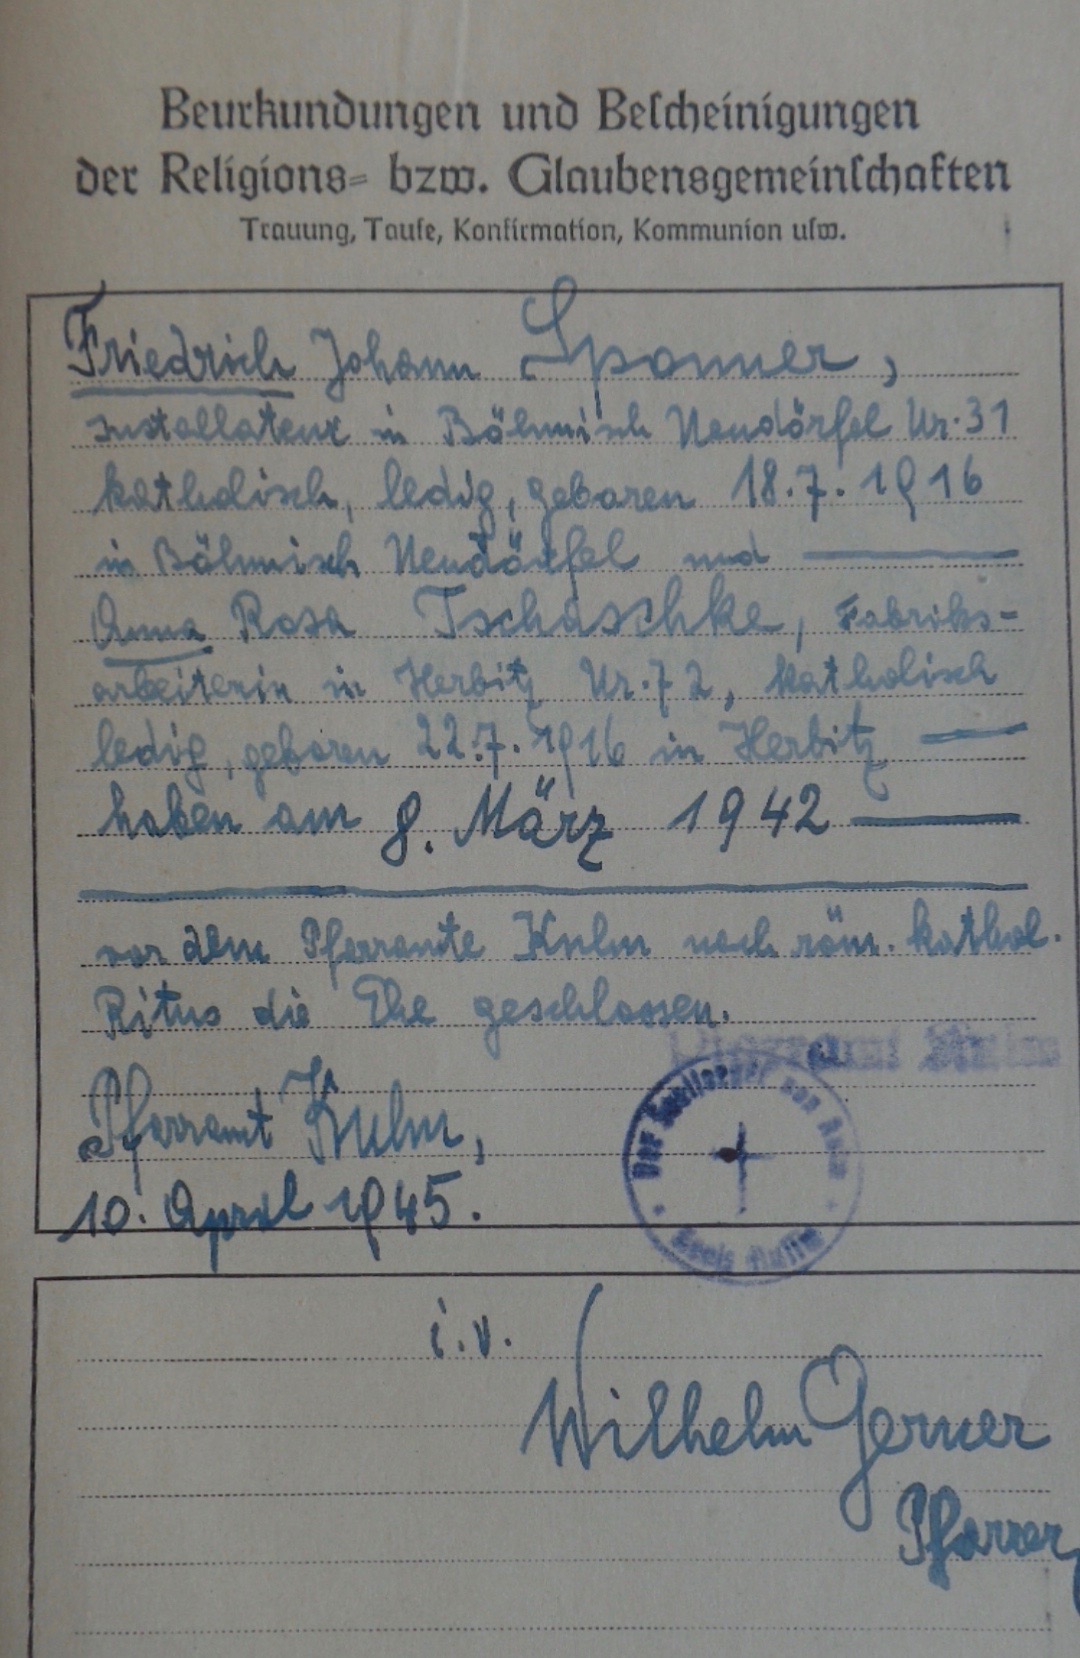 Beurkundungen und Bescheinigungen
der Religions- bzw. Glaubensgemeinschaften
Trauung, Taufe, Konfirmation, Kommunion usw.
Friedrich Johann Sponner,
Installateur in Böhmisch Neudörfel Nr. 31
katholisch, ledig, geboren 18.7.1916
in Böhmisch Neudörfel und
Anna Rosa Tschaschke, Fabriks-
arbeiterin in Herbitz Nr. 72, katholisch
ledig, geboren 22.7.1916 in Herbitz
haben am 8. März 1942
vor dem Pfarramte Kulm nach röm. kathol.
Ritus die Ehe geschlossen.
Pfarramt Kulm
Der Seelsorger von Kulm
Kreis Aussig
Pfarramt Kulm,
10. April 1945.
i.v.
Wilhelm Gerner
Pfarrer